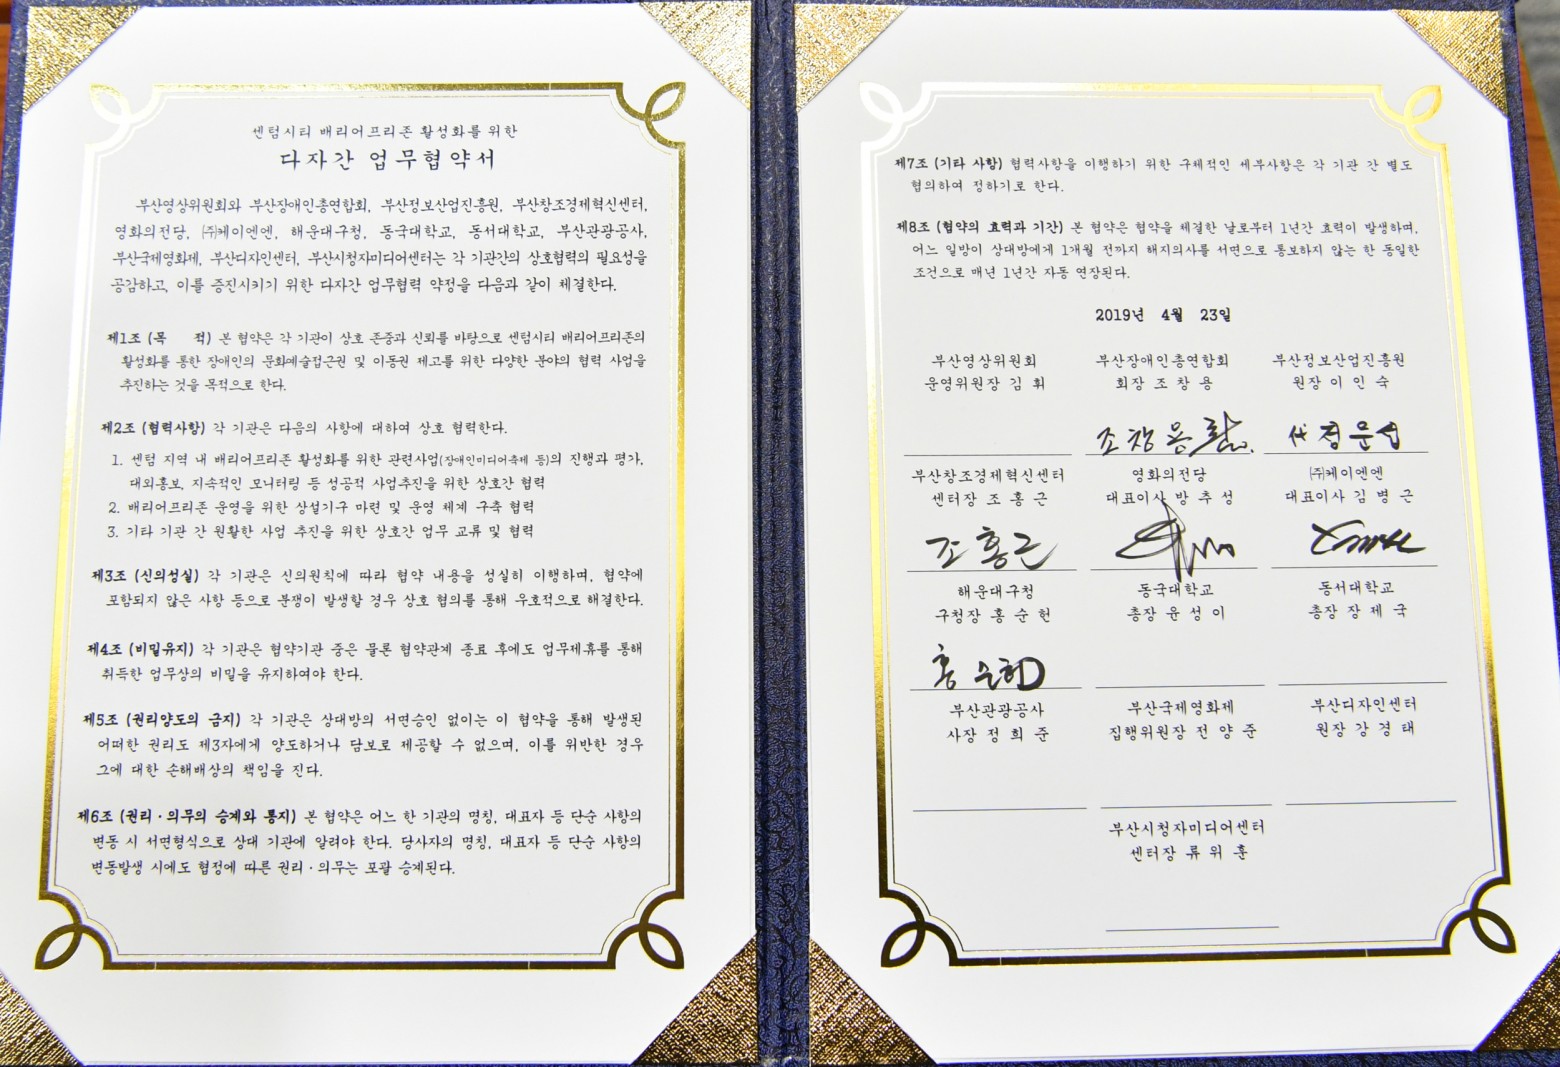 센텀시티 배리어프리존 활성화를 위한
다자간 업무협약서
부산영상위원회와 부산장애인총연합회, 부산정보산업진흥원, 부산창조경제혁신센터,
영화의전당, ㈜케이엔엔, 해운대구청, 동국대학교, 동서대학교, 부산관광공사,
부산국제영화제, 부산디자인센터, 부산시청자미디어센터는 각 기관간의 상호협력의 필요성을
공감하고, 이를 증진시키기 위한 다자간 업무협력 약정을 다음과 같이 체결한다.
제1조 (목 적) 본 협약은 각 기관이 상호 존중과 신뢰를 바탕으로 센텀시티 배리어프리존의
활성화를 통한 장애인의 문화예술접근권 및 이동권 제고를 위한 다양한 분야의 협력 사업을
추진하는 것을 목적으로 한다.
제2조 (협력사항) 각 기관은 다음의 사항에 대하여 상호 협력한다.
1. 센텀 지역 내 배리어프리존 활성화를 위한 관련사업(장애인미디어축제 등)의 진행과 평가,
대외홍보, 지속적인 모니터링 등 성공적 사업추진을 위한 상호간 협력
2. 배리어프리존 운영을 위한 상설기구 마련 및 운영 체계 구축 협력
3. 기타 기관 간 원활한 사업 추진을 위한 상호간 업무 교류 및 협력
제3조 (신의성실) 각 기관은 신의원칙에 따라 협약 내용을 성실히 이행하며, 협약에
포함되지 않은 사항 등으로 분쟁이 발생할 경우 상호 협의를 통해 우호적으로 해결한다.
제4조 (비밀유지) 각 기관은 협약기관 중은 물론 협약관계 종료 후에도 업무제휴를 통해
취득한 업무상의 비밀을 유지하여야 한다.
제5조 (권리양도의 금지) 각 기관은 상대방의 서면승인 없이는 이 협약을 통해 발생된
어떠한 권리도 제3자에게 양도하거나 담보로 제공할 수 없으며, 이를 위반한 경우
그에 대한 손해배상의 책임을 진다.
제6조 (권리·의무의 승계와 통지) 본 협약은 어느 한 기관의 명칭, 대표자 등 단순 사항의
변동 시 서면형식으로 상대 기관에 알려야 한다. 당사자의 명칭, 대표자 등 단순 사항의
변동발생 시에도 협정에 따른 권리·의무는 포괄 승계된다.
제7조 (기타 사항) 협력사항을 이행하기 위한 구체적인 세부사항은 각 기관 간 별도
협의하여 정하기로 한다.
제8조 (협약의 효력과 기간) 본 협약은 협약을 체결한 날로부터 1년간 효력이 발생하며,
어느 일방이 상대방에게 1개월 전까지 해지의사를 서면으로 통보하지 않는 한 동일한
조건으로 매년 1년간 자동 연장된다.
2019년 4월 23일
부산영상위원회 부산장애인총연합회 부산정보산업진흥원
운영위원장 김 휘 회장 조 창 용 원장 이 인 숙
조창용 代 정문섭
부산창조경제혁신센터 영화의전당 ㈜케이엔엔
센터장 조 홍 근 대표이사 방 추 성 대표이사 김 병 근
조홍근
해운대구청 동국대학교 동서대학교
구청장 홍 순 헌 총장 윤 성 이 총장 장 제 국
홍순헌
부산관광공사 부산국제영화제 부산디자인센터
사장 정 희 준 집행위원장 전 양 준 원장 강 경 태
부산시청자미디어센터
센터장 류 위 훈